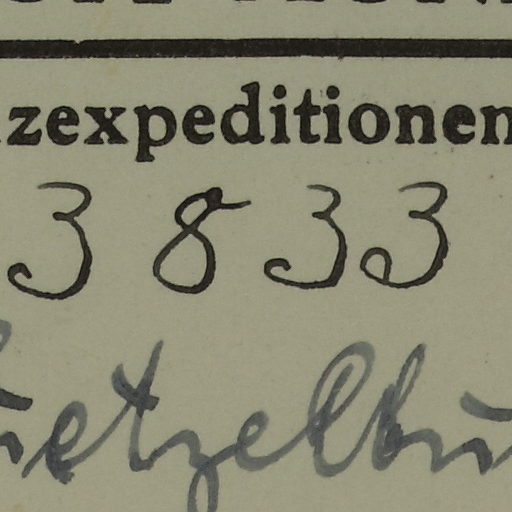 zexpeditionen
3 8 33
uetzelbu